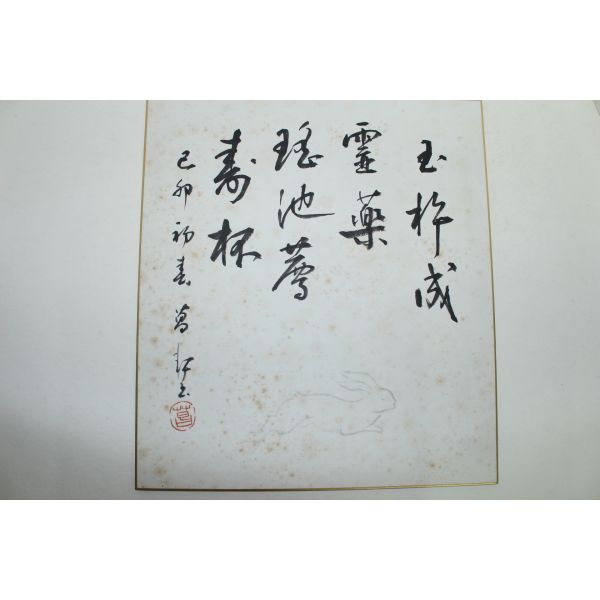 玉杵成
靈藥
瑤池薦
壽杯
己卯初春